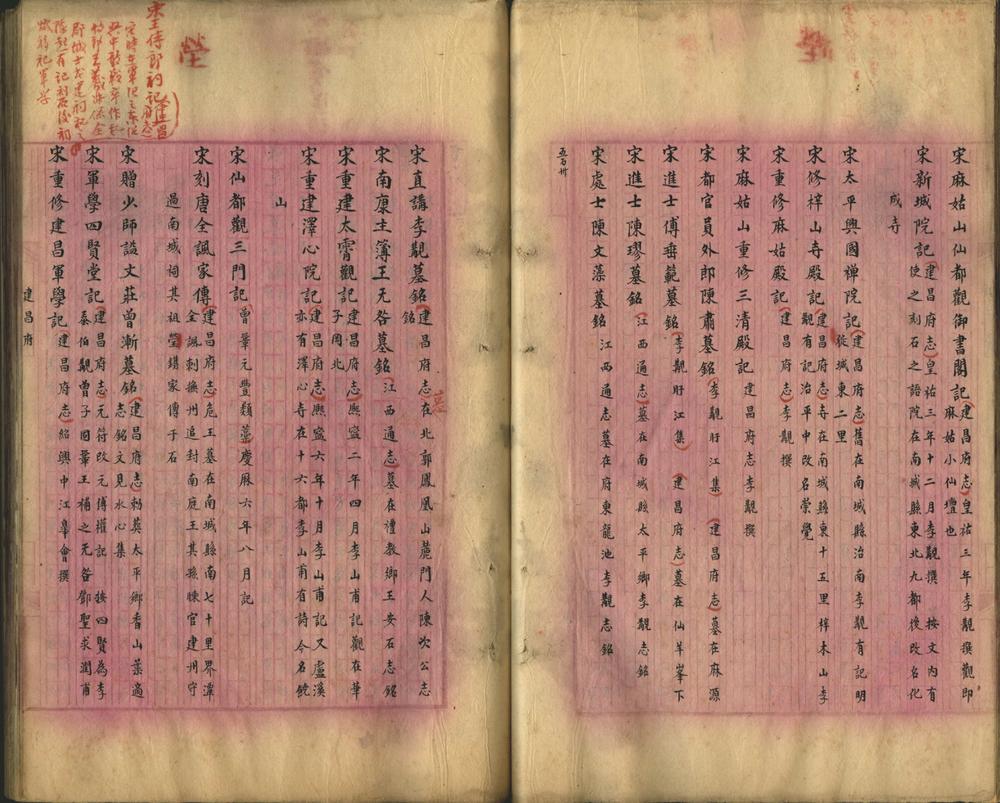 宋麻姑山仙都觀御書閣記(建昌府志)皇祐三年李覯撰觀即
麻姑小仙壇也
宋新城院記(建昌府志)皇祐三年十二月李覯撰 按文內有
使之刻石之語院在南城縣東北九都後改名化
成寺
宋太平興國禪院記(建昌府志)舊在南城縣治南李覯有記明
從城東二里
宋修梓山寺殿記(建昌府志)寺在南城縣東十五里梓木山李
覯有記治平中改名崇覺
宋重修麻姑殿記(建昌府志)李覯撰
宋麻姑山重修三清殿記 建昌府志李覯撰
宋都官員外郎陳肅墓銘(李覯盱江集)(建昌府志)墓在麻源
宋進士傅垂範墓銘(李覯盱江集)(建昌府志)墓在仙羊峯下
宋進士陳璆墓銘(江西通志)墓在南城縣太平鄉李覯志銘
宋處士陳文藻墓銘 江西通志墓在府東龍池李覯志銘
五百卅
瑩
宋王侍郎祠記(建昌府志)
瑩
宋直講李覯墓銘(建昌府志)在北郭鳳凰山麓門人陳次公志
銘
宋南康主簿王无咎墓銘(江西通志)墓在禮教鄉王安石志銘
宋重建太霄觀記(建昌府志)熙寧二年四月李山甫記觀在華
子岡北
宋重建澤心院記(建昌府志)熙寧六年十月李山甫記又盧溪
亦有澤心寺在十六都李山甫有詩今名饒
山
宋仙都觀三門記(曾鞏元豐類藁)慶厯六年八月記
宋刻唐全諷家傳(建昌府志)危王墓在南城縣南七十里界漈
全諷刺撫州追封南庭王其孫悚官建州守
過南城祠其祖瑩鑱家傳于石
宋贈少師諡文莊曾漸墓銘(建昌府志)勑葬太平鄉香山葉適
志銘文見水心集
宋軍學四賢堂記(建昌府志)元符改元傅權記 按四賢為李
泰伯覯曾子固鞏王補之无咎鄧聖求潤甫
宋重修建昌軍學記(建昌府志)紹興中江皋會撰
建昌府